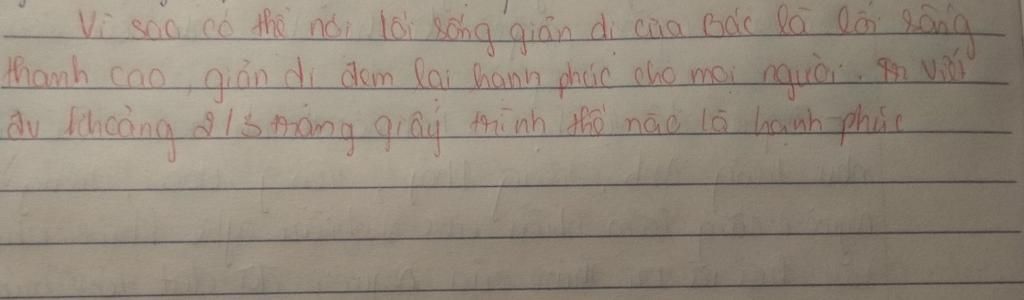 Vì sao có thể nói lối sống giản dị của Bác là lối sống
thanh cao, giản dị đem lại hạnh phúc cho mọi người. viết
đv khoảng 2/3 trang giấy trình thế nào là hạnh phúc